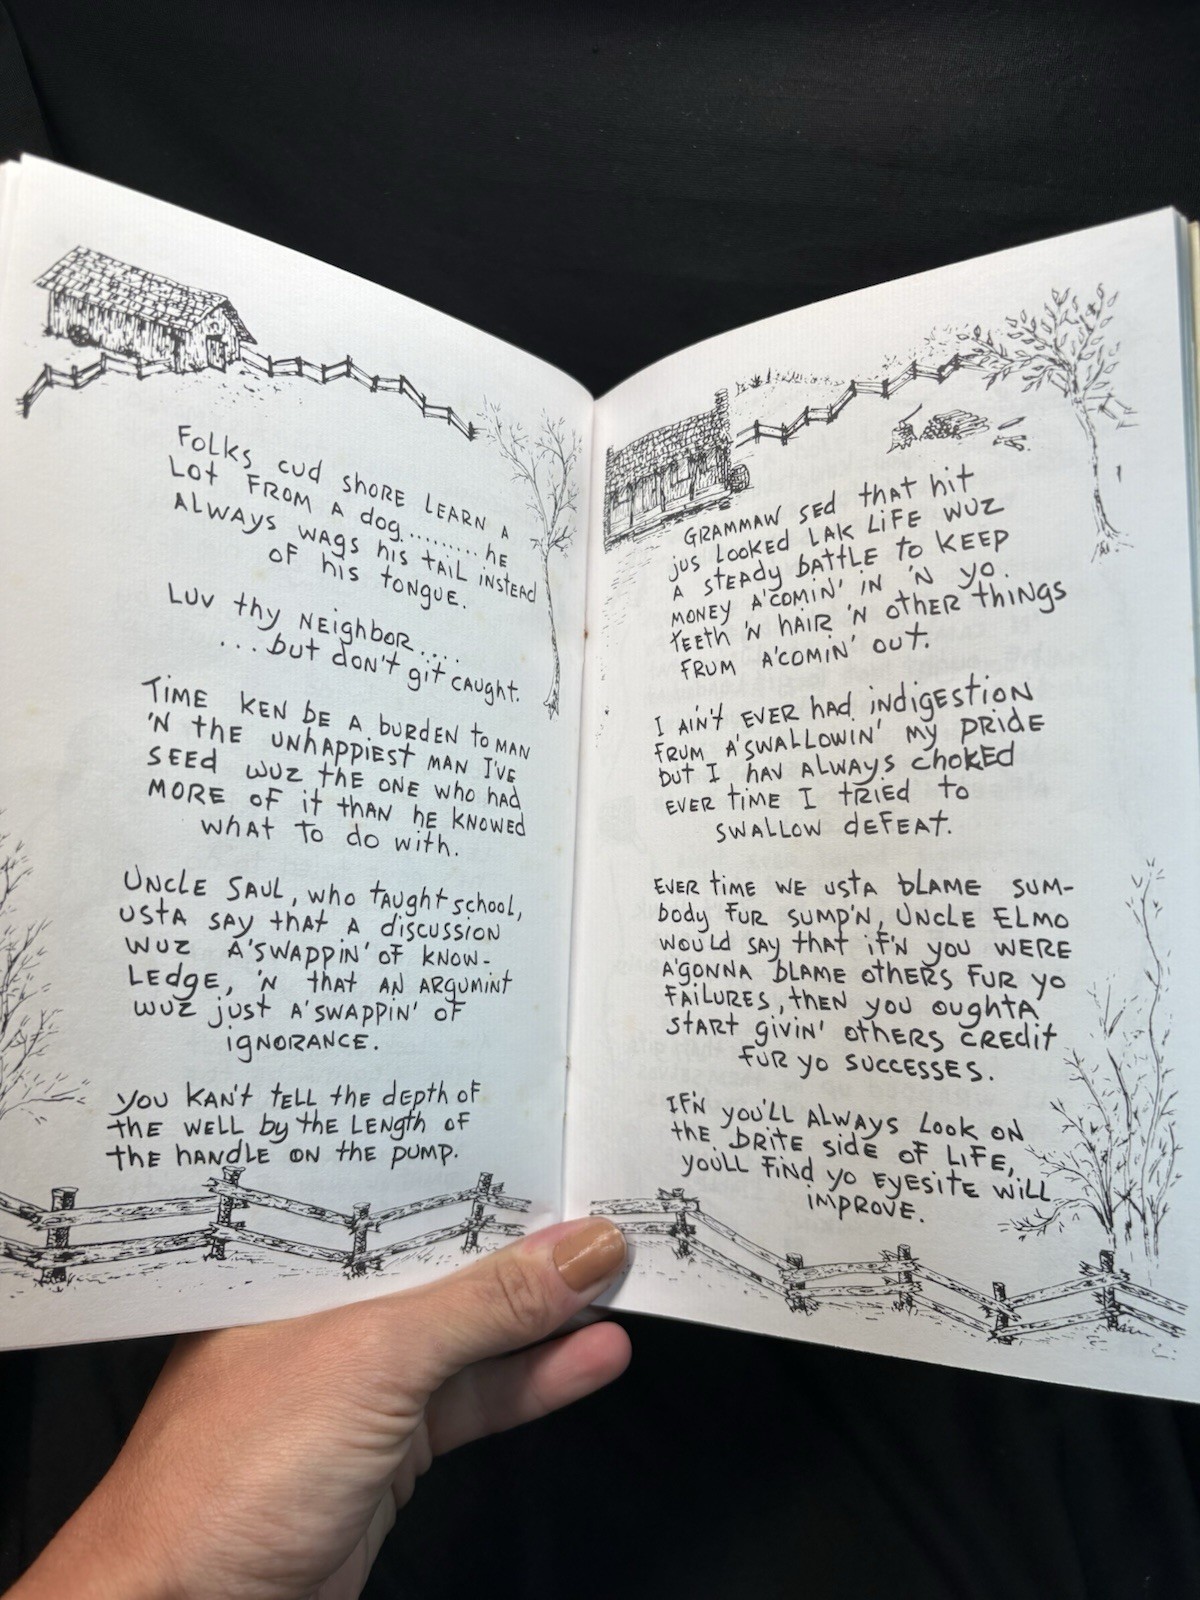 Folks cud shore learn a
lot from a dog.........he
always wags his tail instead
of his tongue.
Luv thy neighbor....
...but don't git caught.
Time ken be a burden to man
'n the unhappiest man I've
seed wuz the one who had
more of it than he knowed
what to do with.
Uncle Saul, who taught school,
usta say that a discussion
wuz a'swappin' of know-
ledge, 'n that an argumint
wuz just a'swappin' of
ignorance.
You kan't tell the depth of
the well by the length of
the handle on the pump.
Grammaw sed that hit
jus looked lak life wuz
a steady battle to keep
money a'comin' in 'n yo
teeth 'n hair 'n other things
frum a'comin' out.
I ain't ever had indigestion
frum a'swallowin' my pride
but I hav always choked
ever time I tried to
swallow defeat.
Ever time we usta blame sum-
body fur sump'n, Uncle Elmo
would say that if'n you were
a'gonna blame others fur yo
failures, then you oughta
start givin' others credit
fur yo successes.
If'n you'll always look on
the brite side of life,
you'll find yo eyesite will
improve.